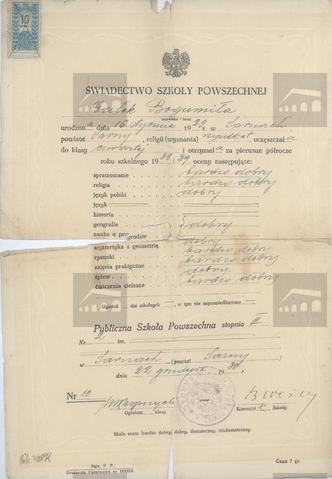 10
ŚWIADECTWO SZKOŁY POWSZECHNEJ
Bogumiła
(nazwisko i imię)
urodzona dnia 16 stycznia 1929 r. w Sarnach
powiat Sarny, religii (wyznania) rzymkat, uczęszczała
do klasy czwartej i otrzymała za pierwsze półrocze
roku szkolnego 1938/39 oceny następujące:
sprawowanie bardzo dobry
religia bardzo dobry
język polski dobry
język
historia
geografia dobry
nauka o przyrodzie
arytmetyka z geometrią dobry
rysunki bardzo dobry
zajęcia praktyczne bardzo dobry
śpiew dobry
ćwiczenia cielesne bardzo dobry
Opuścił dni szkolnych w tym nie usprawiedliwiono
Publiczna Szkoła Powszechna stopnia III
Nr 2 im.
w Sarnach powiat Sarny
dnia 22 grudnia 1938 r.
Nr 10
Opiekun klasy
Kierownik Szkoły
Skala ocen: bardzo dobry, dobry, dostateczny, niedostateczny.
Cena 7 gr.